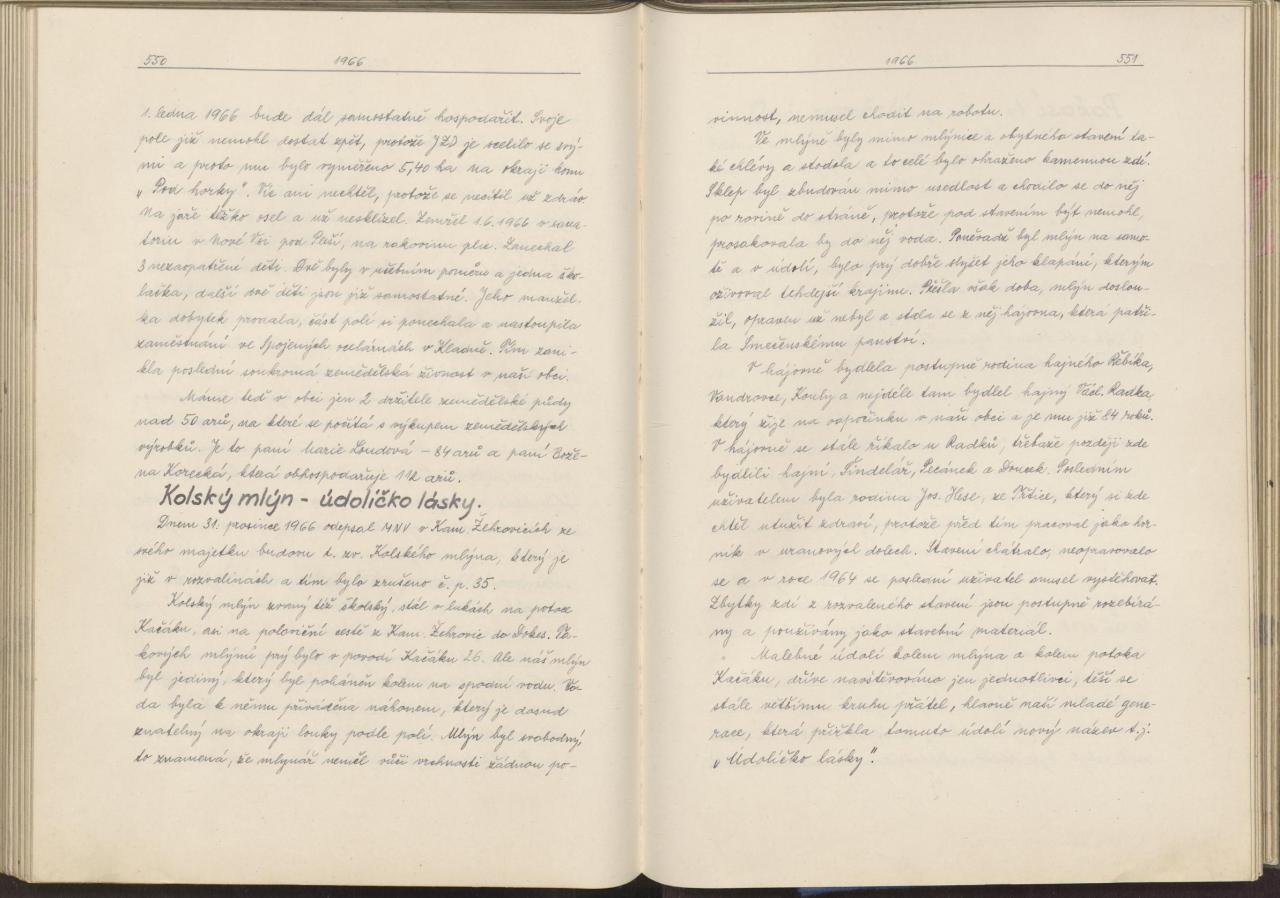 550 1966
1. ledna 1966 bude dál samostatně hospodařit. Svoje
pole již nemohl dostat zpět, protože JZD je scelilo se svý-
mi a proto mu bylo vyměřeno 5,40 ha na okraji honu
„Pod horky". Víc ani nechtěl, protože se necítil už zdráv.
Na jaře těžko osel a už nesklízel. Zemřel 1.6.1966 v sana-
toriu v Nové Vsi pod Pleší, na rakovinu plic. Zanechal
3 nezaopatřené děti. Dvě byly v učebním poměru a jedna ško-
lačka, další dvě děti jsou již samostatné. Jeho manžel-
ka dobytek prodala, část polí si ponechala a nastoupila
zaměstnání ve Spojených ocelárnách v Kladně. Tím zani-
kla poslední soukromá zemědělská živnost v naší obci.
Máme teď v obci jen 2 držitele zemědělské půdy
nad 50 arů, na které se počítá s výkupem zemědělských
výrobků. Je to paní Marie Londová – 84 arů a paní Bože-
na Korecká, která obhospodařuje 112 arů.
Kolský mlýn – údolíčko lásky.
Dnem 31. prosince 1966 odepsal MNV v Kam. Žehrovicích ze
svého majetku budovu t. zv. Kolského mlýna, který je
již v rozvalinách a tím bylo zrušeno č. p. 35.
Kolský mlýn zvaný též školský, stál v lukách na potoce
Kačáku, asi na poloviční cestě z Kam. Žehrovic do Dokes. Ta-
kových mlýnů prý bylo v povodí Kačáku 26. Ale náš mlýn
byl jediný, který byl poháněn kolem na spodní vodu. Vo-
da byla k němu přiváděna náhonem, který je dosud
znatelný na okraji louky podle polí. Mlýn byl svobodný,
to znamená, že mlynář neměl vůči vrchnosti žádnou po-
1966 551
vinnost, nemusel chodit na robotu.
Ve mlýně byly mimo mlýnice a obytného stavení ta-
ké chlévy a stodola a to celé bylo ohrazeno kamennou zdí.
Sklep byl zbudován mimo usedlost a chodilo se do něj
po rovině do stráně, protože pod stavením být nemohl,
prosakovala by do něj voda. Poněvadž byl mlýn na samo-
tě a v údolí, bylo prý dobře slyšet jeho klapání, kterým
oživoval tehdejší krajinu. Přešla však doba, mlýn doslou-
žil, opraven už nebyl a stala se z něj hájovna, která patři-
la Smečenskému panství.
V hájovně bydlela postupně rodina hajného Řebíka,
Vandrovce, Kouby a nejdéle tam bydlel hajný Václ. Radka,
který žije na odpočinku v naší obci a je mu již 84 roků.
V hájovně se stále říkalo u Radků, třebaže později zde
bydlili hajní, Findelář, Pecánek a Doucek. Posledním
uživatelem byla rodina Jos. Hese, ze Ptice, který si zde
chtěl utužit zdraví, protože před tím pracoval jako hor-
ník v uranových dolech. Stavení chátralo, neopravovalo
se a v roce 1964 se poslední uživatel musel vystěhovat.
Zbytky zdí z rozvaleného stavení jsou postupně rozebírá-
ny a používány jako stavební materiál.
Malebné údolí kolem mlýna a kolem potoka
Kačáku, dříve navštěvováno jen jednotlivci, těší se
stále většímu kruhu přátel, hlavně naší mladé gene-
race, která přiřkla tomuto údolí nový název t. j.
„Údolíčko lásky".